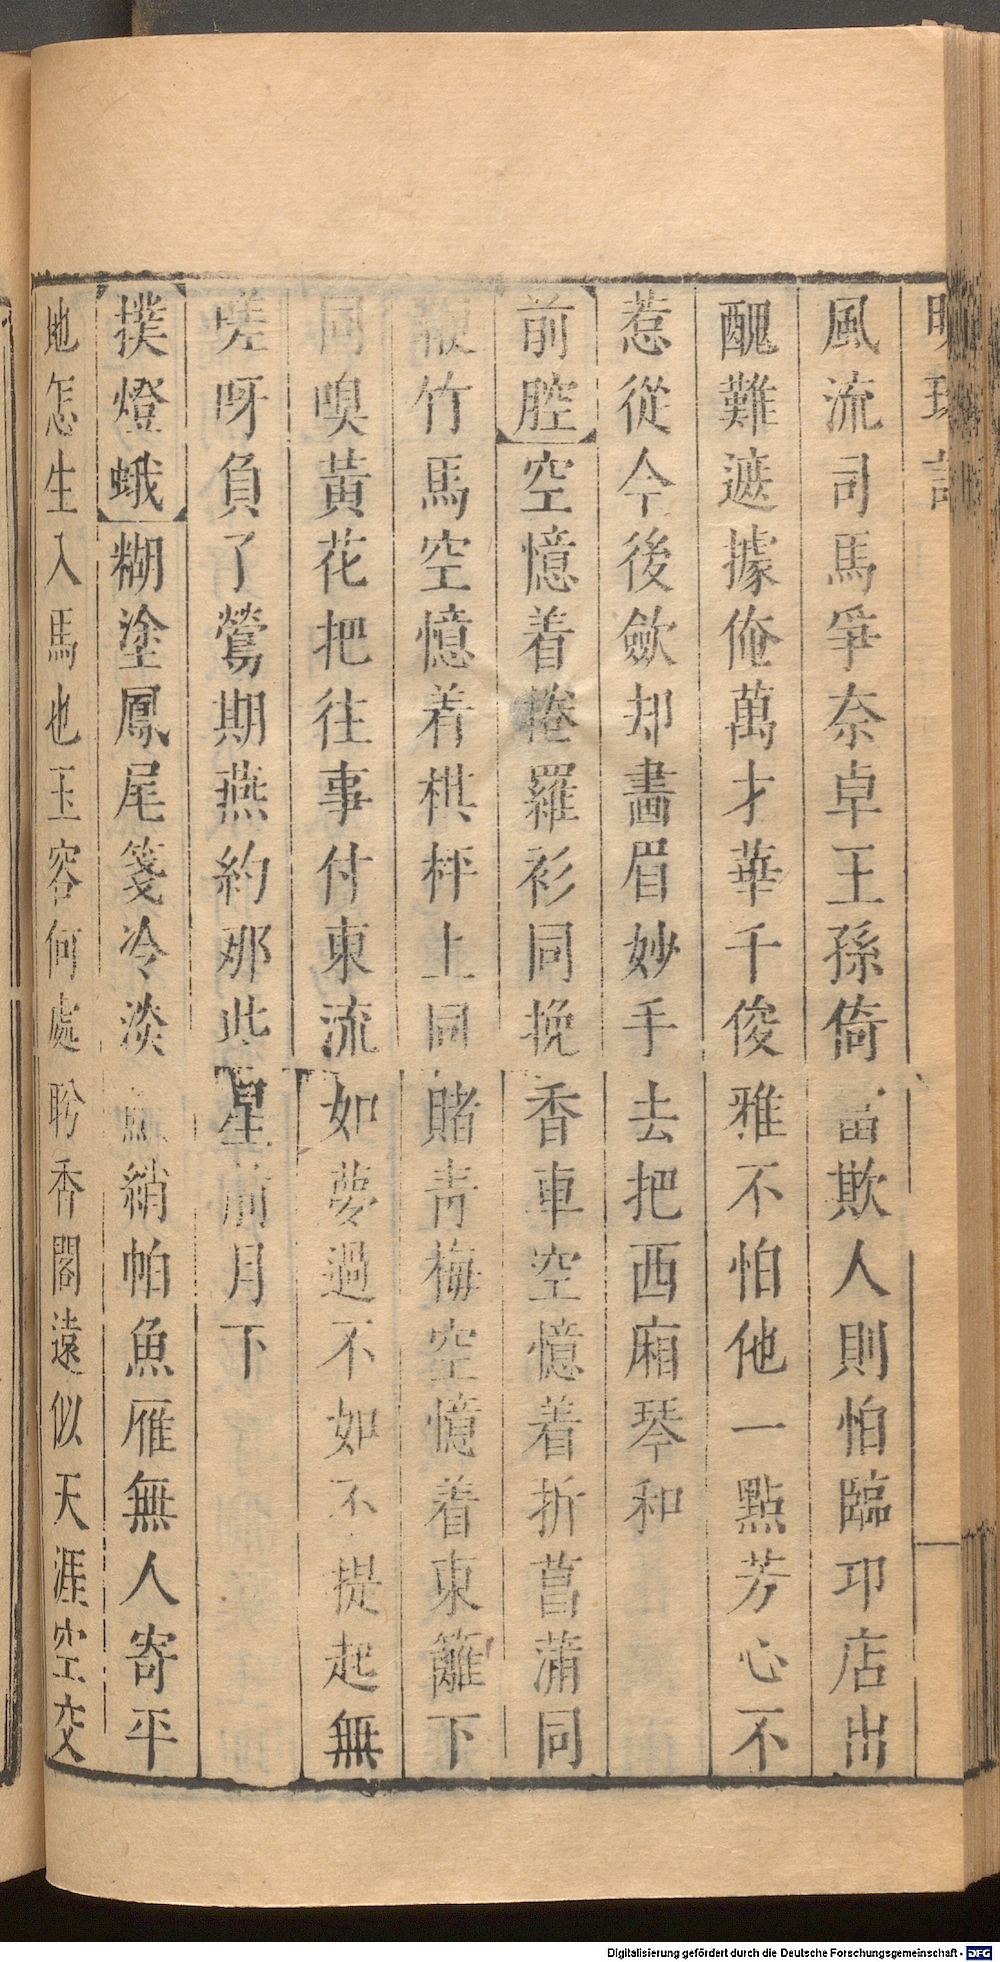 明珠記
風流司馬爭奈卓王孫倚富欺人則怕臨邛店出
醜難遮據俺萬才華千俊雅不怕他一點芳心不
惹從今後歛却畫眉妙手去把西廂琴和
前腔空憶着捲羅衫同挽香車空憶着折菖蒲同
竹馬空憶着棋枰上同賭青梅空憶着東籬下
同嗅黃花把往事付東流如夢過不如不提起無
嗟呀負了鶯期燕約那些星前月下
撲燈蛾糊塗鳳尾箋冷淡鮫綃帕魚雁無人寄平
地怎生入馬也玉容何處聆香閣遠似天涯空交
Digitalisierung gefördert durch die Deutsche Forschungsgemeinschaft - DFG